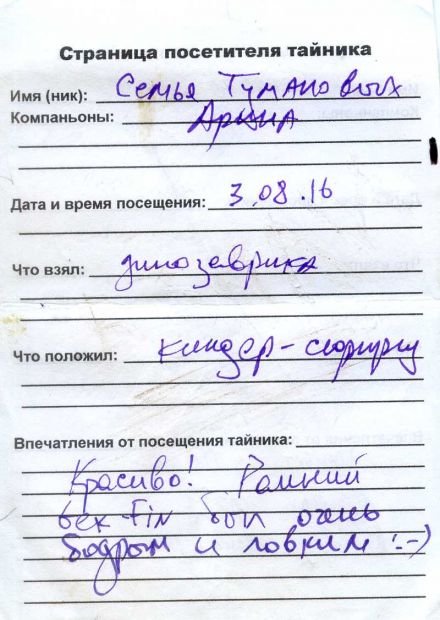 Страница посетителя тайника
Имя (ник): Семья Тумановых
Компаньоны:
Дата и время посещения: 3.08.16
Что взял: динозаврика
Что положил: киндер-сюрприз
Впечатления от посещения тайника:
Красиво! Ранний
был очень
бодрым и ловким :-)